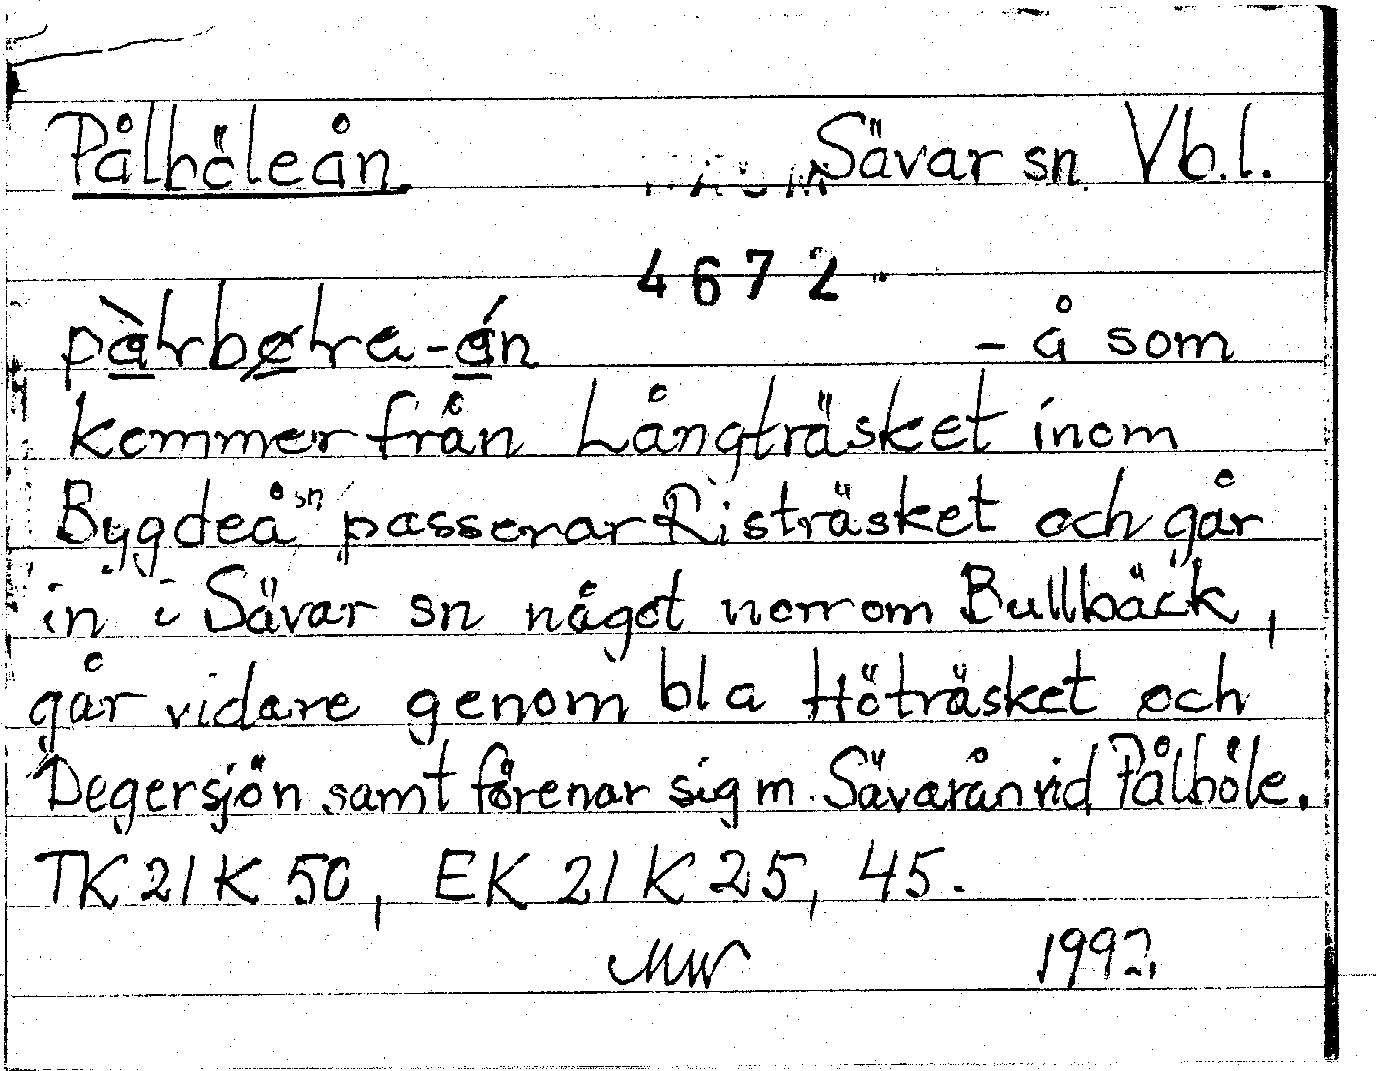 Pålböleån Sävar sn Vb.l.
4672
- å som
kommer från Långträsket inom
Bygdeå sn passerar Risträsket och går
in i Sävar sn något norr om Bullbäck,
går vidare genom bl a Höträsket och
Degersjön samt förenar sig m. Sävarån vid Pålböle.
TK 21 K 50, EK 21 K 25, 45.
MW 1992